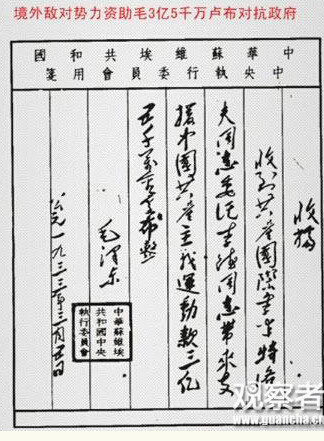 境外敌对势力资助毛3亿5千万卢布对抗政府
中華蘇維埃共和國
中央執行委員會用箋
收據
收到共產國際書记特洛
夫同志委託李德同志帶来支
援中國共產主義運動款三亿
五千萬盧布整
毛澤东
公元一九三三年三月五日
中華蘇維埃
共和國中央
執行委員會
观察者
guancha.cn